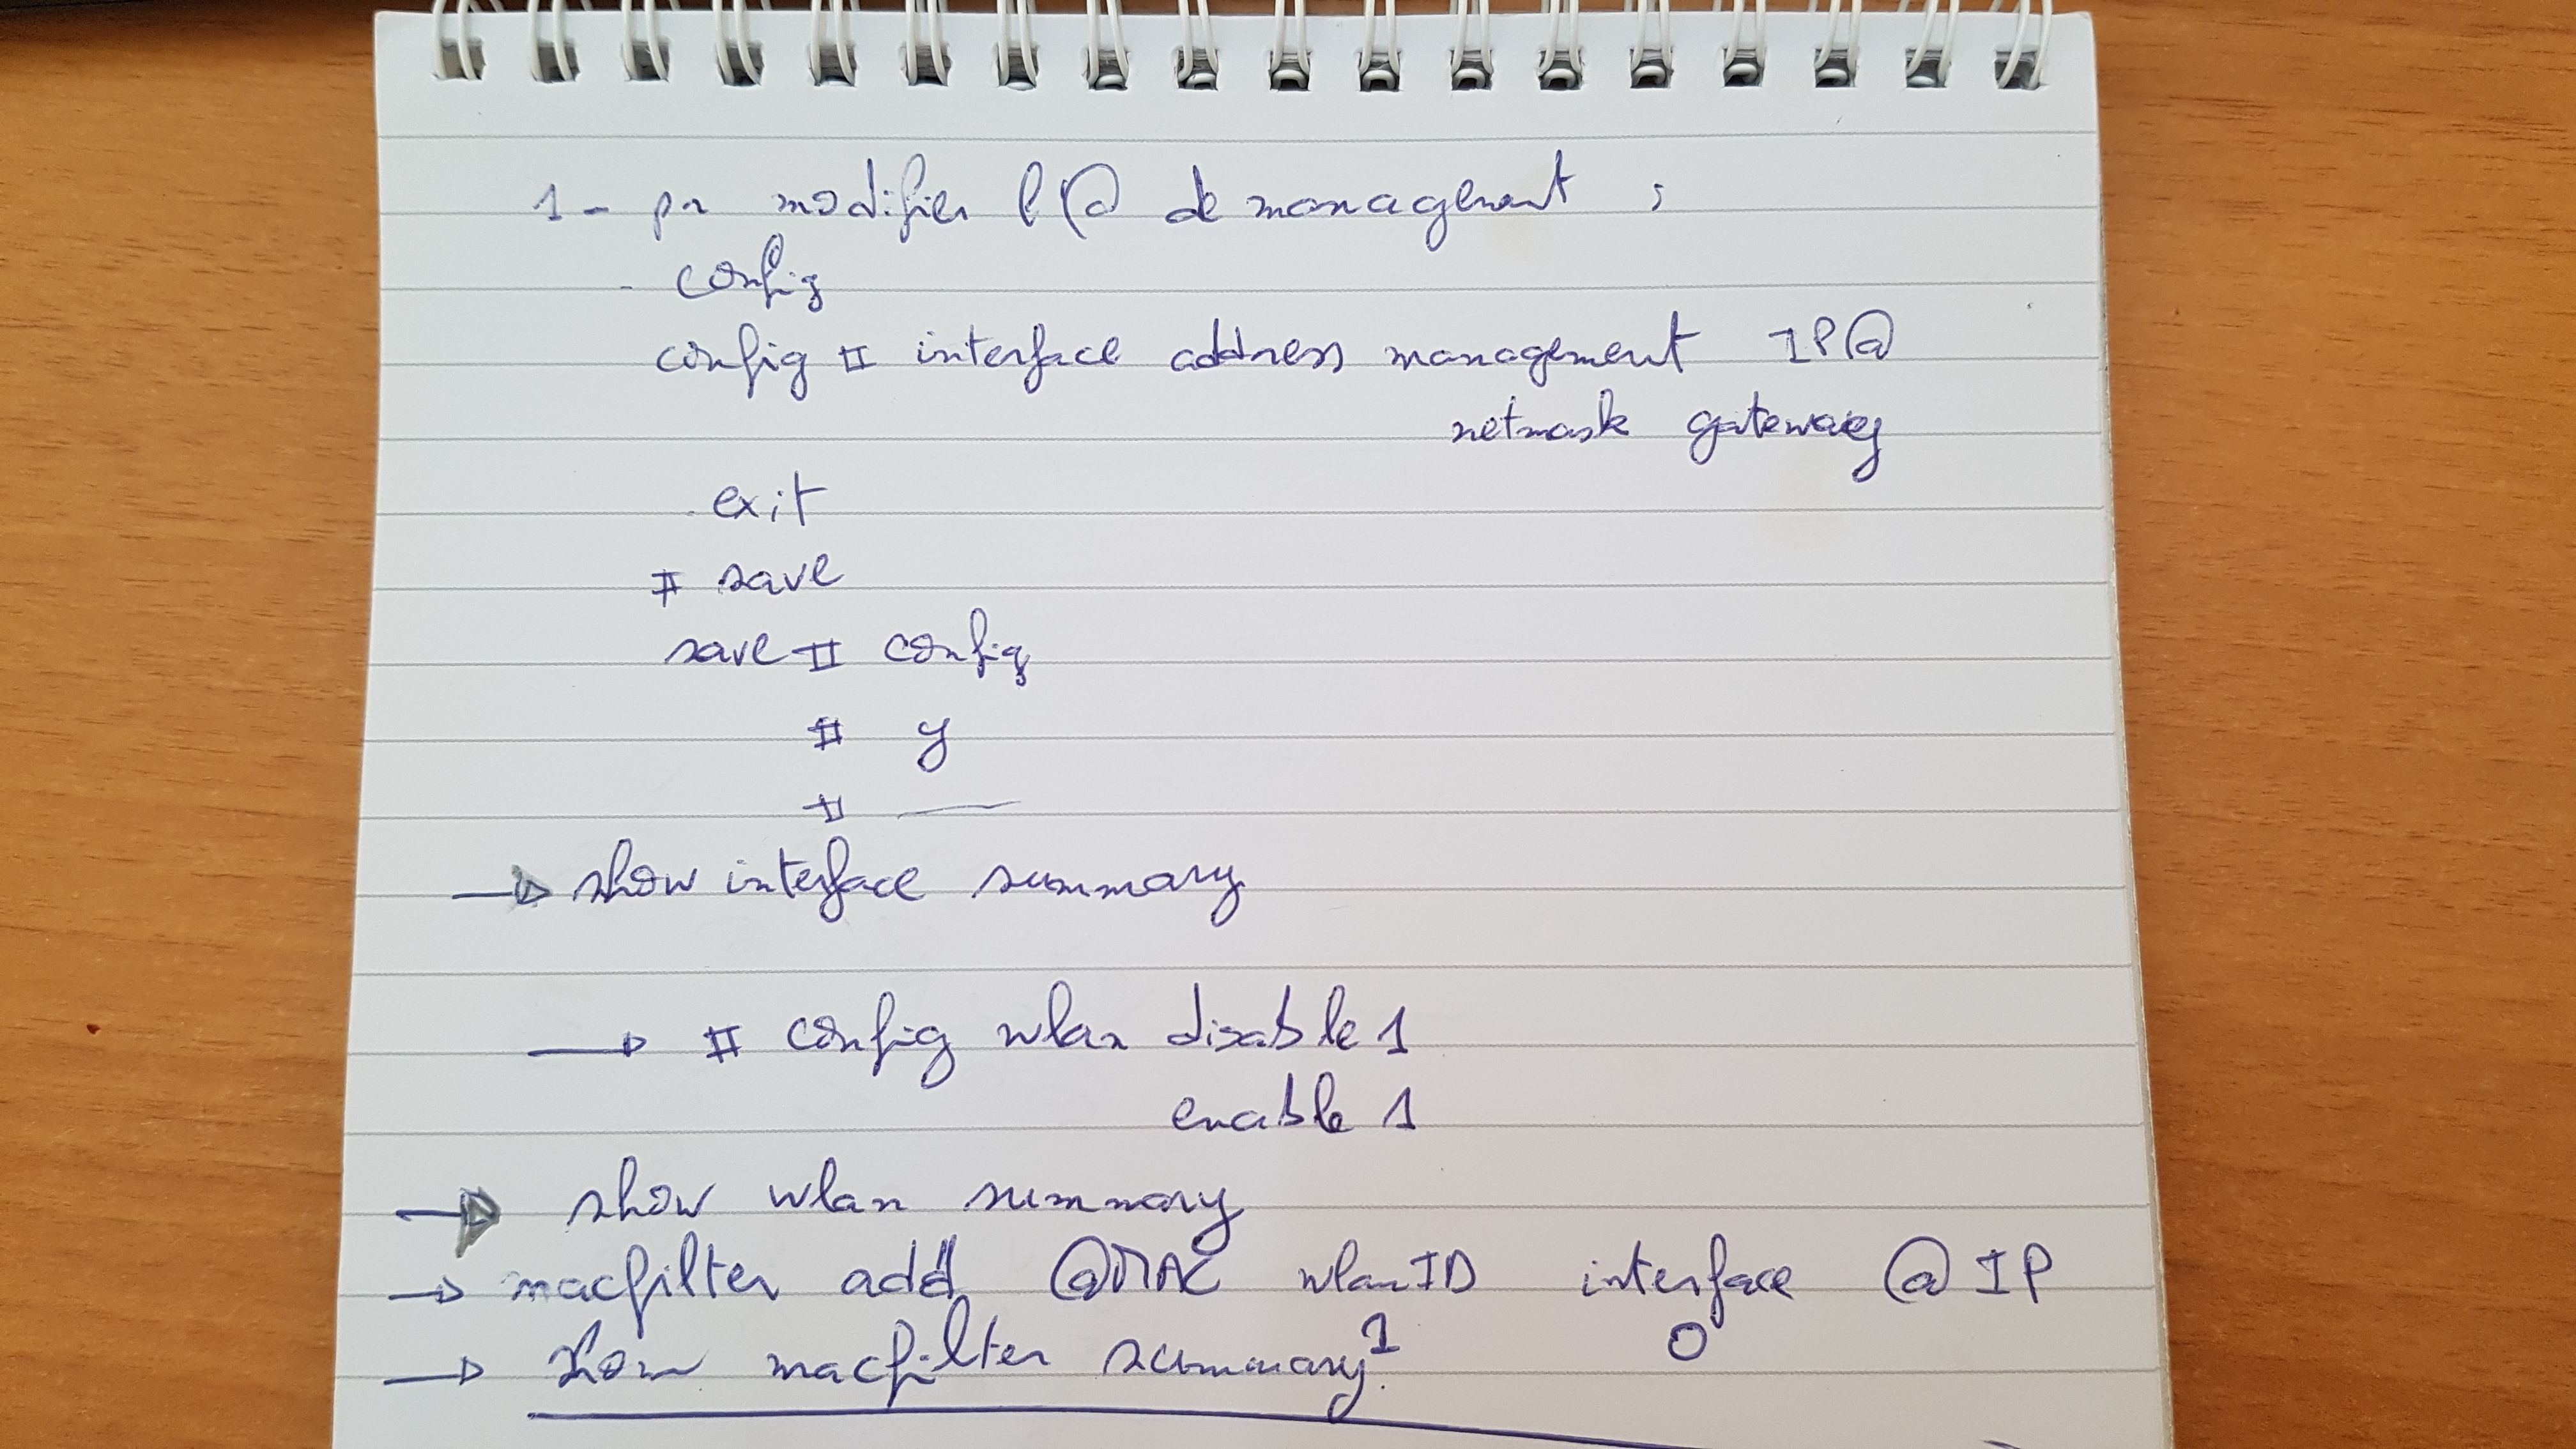 1 - pr modifier l'@ de managment :
- config
config # interface address management IP@
netmask gateway
. exit
# save
save # config
# y
#
→ show interface summary
→ # config wlan disable 1
enable 1
→ show wlan summary
→ macfilter add @MAC wlan ID interface @IP
1 0
→ show macfilter summary.